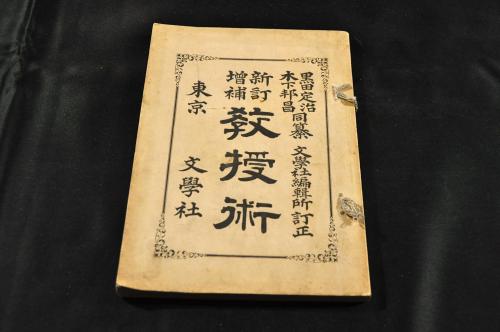 黒田定治
木下邦昌
同纂
文學社編輯所訂正
新訂
增補
敎授術
東京
文學社